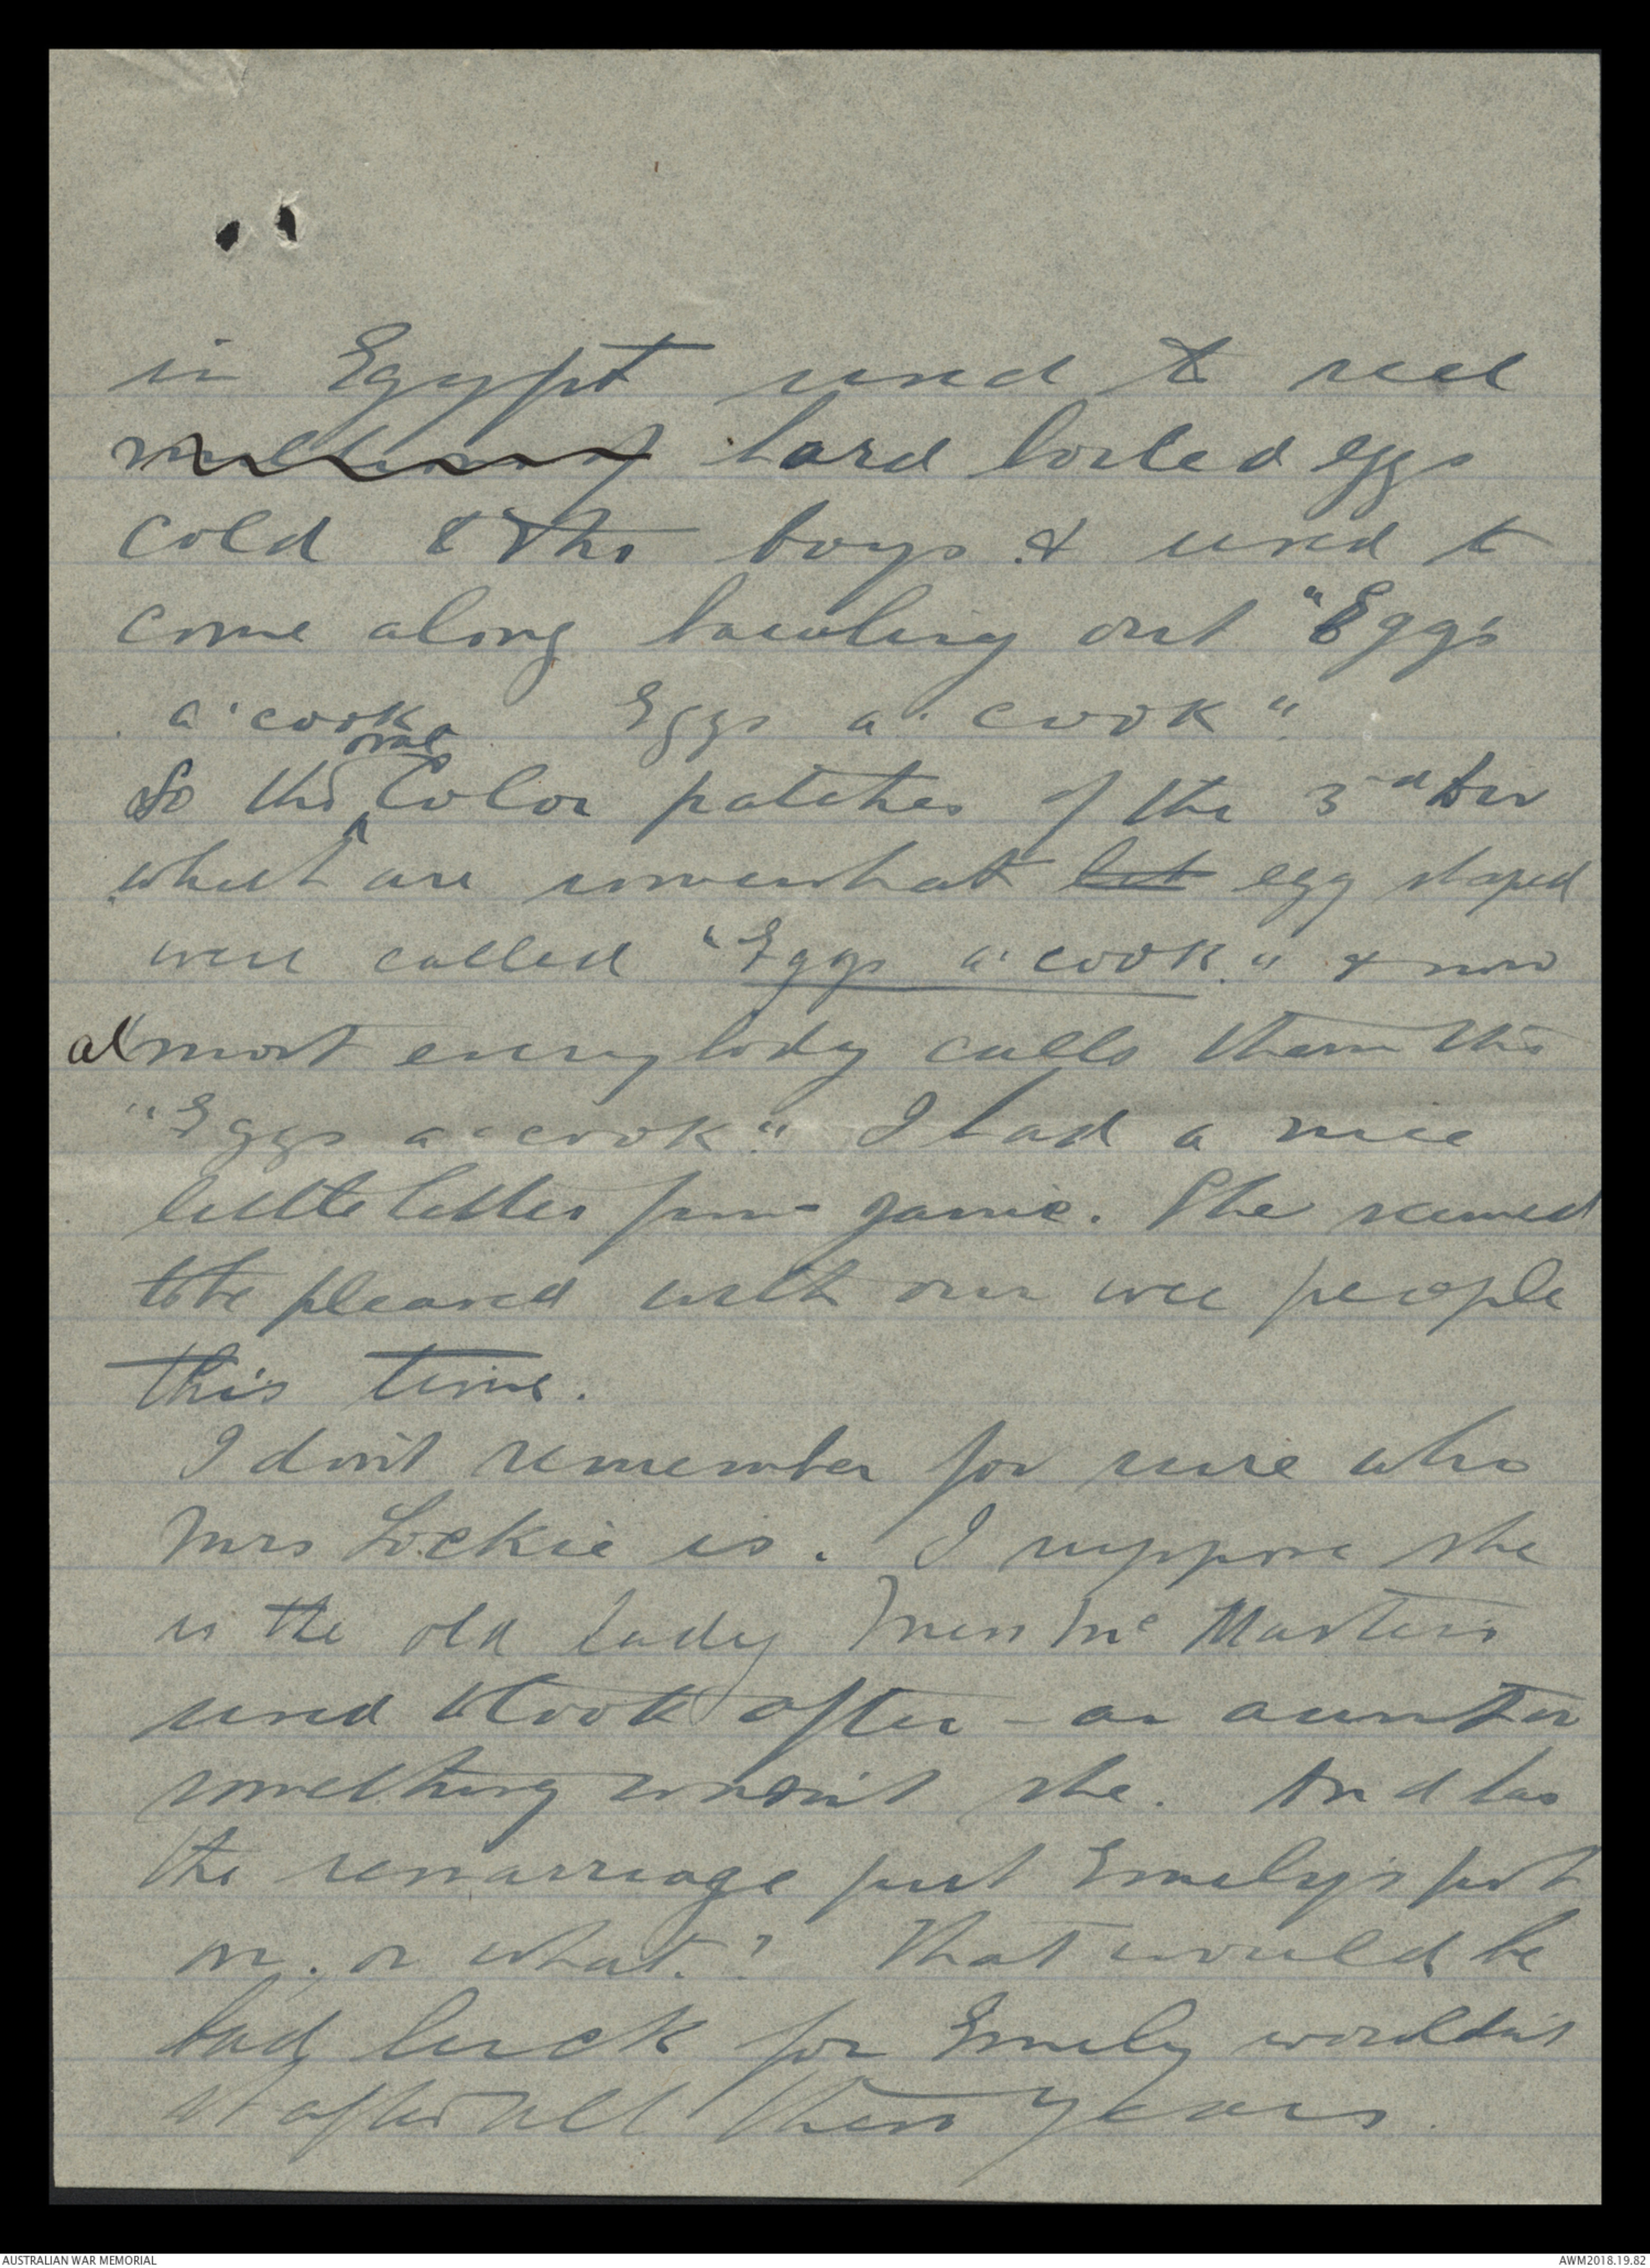 in Egypt used to sell
hard boiled eggs
cold & the boys & used to
come along bawling out "Eggs
a' cook Eggs a' cook"
So the oval Color patches of the 3rd Div
which are somewhat egg shaped
were called "Eggs a' cook." & now
almost everybody calls them the
"Eggs a' cook" I had a nice
little letter from Jamie. She seemed
to be pleased with our wee people
this time.
I don't remember for sure who
Mrs Lockie is. I suppose she
is the old lady Miss McMasters
used to look after - an aunt or
something wasn't she. And has
the remarriage put Emily's pot
on, or what? That would be
bad luck for Emily wouldn't
it after all these years.
AUSTRALIAN WAR MEMORIAL
AWM2018.19.82